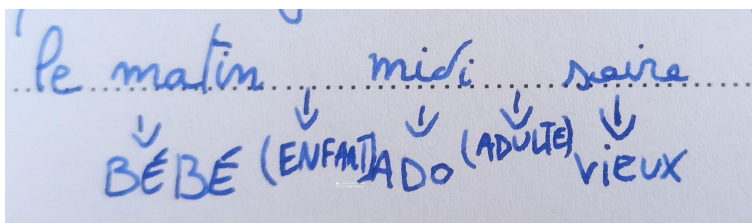 le matin midi soire
BÉBÉ (ENFANT) ADO (ADULTE) vieux